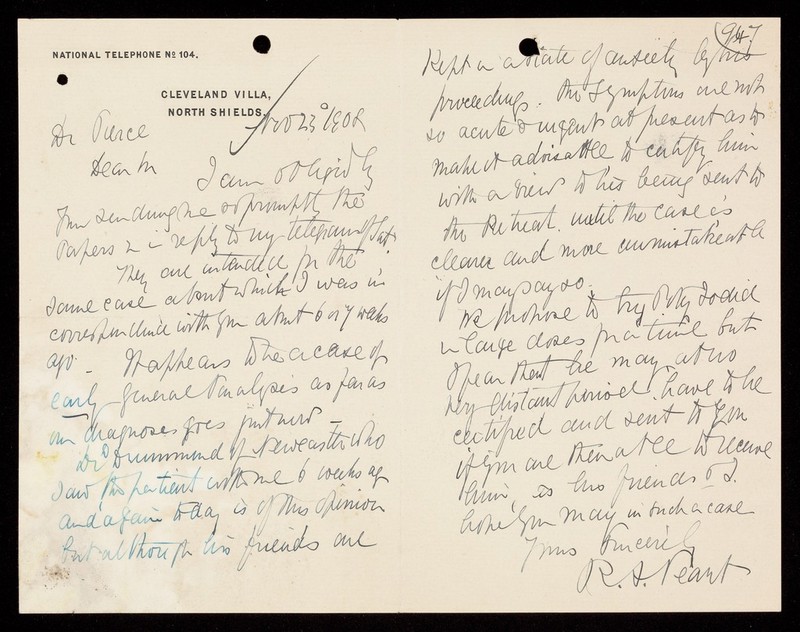 NATIONAL TELEPHONE Nº 104.
CLEVELAND VILLA,
NORTH SHIELDS.
Nov 23d 1908
Dr Pierce
Dear Sir
I am obliged by
Your sending me so promptly the
Papers in reply to my telegram of Sat.
They are intended for the
same case about which I was in
correspondence with you about 6 or 7 weeks
ago - It appears to be a case of
early General Paralysis as far as
our diagnoses goes just now -
Dr Drummond of Newcastle who
saw the patient with me 6 weeks ago
and again today is of this opinion
but although his friends are
947
Kept in a state of anxiety by his
proceedings. The Symptoms are not
so acute & urgent at present as to
make it advisable to certify him
with a view to his being sent to
the Retreat, until the case is
clearer and more unmistakeable
if I may say so.
We propose to try Pot. Iodid
in large doses for a time but
I fear that he may at no
very distant period have to be
certified and sent to you
if you are then able to receive
him, as his friends & I
hope you may in such a case
Yours Sincerely
R. S. Peart